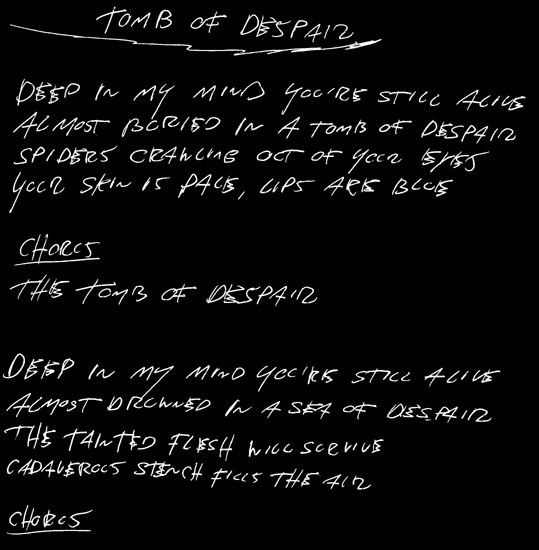 TOMB OF DESPAIR
DEEP IN MY MIND YOU'RE STILL ALIVE
ALMOST BURIED IN A TOMB OF DESPAIR
SPIDERS CRAWLING OUT OF YOUR EYES
YOUR SKIN IS PALE, LIPS ARE BLUE
CHORUS
THE TOMB OF DESPAIR
DEEP IN MY MIND YOU'RE STILL ALIVE
ALMOST DROWNED IN A SEA OF DESPAIR
THE TAINTED FLESH WILL SURVIVE
CADAVEROUS STENCH FILLS THE AIR
CHORUS